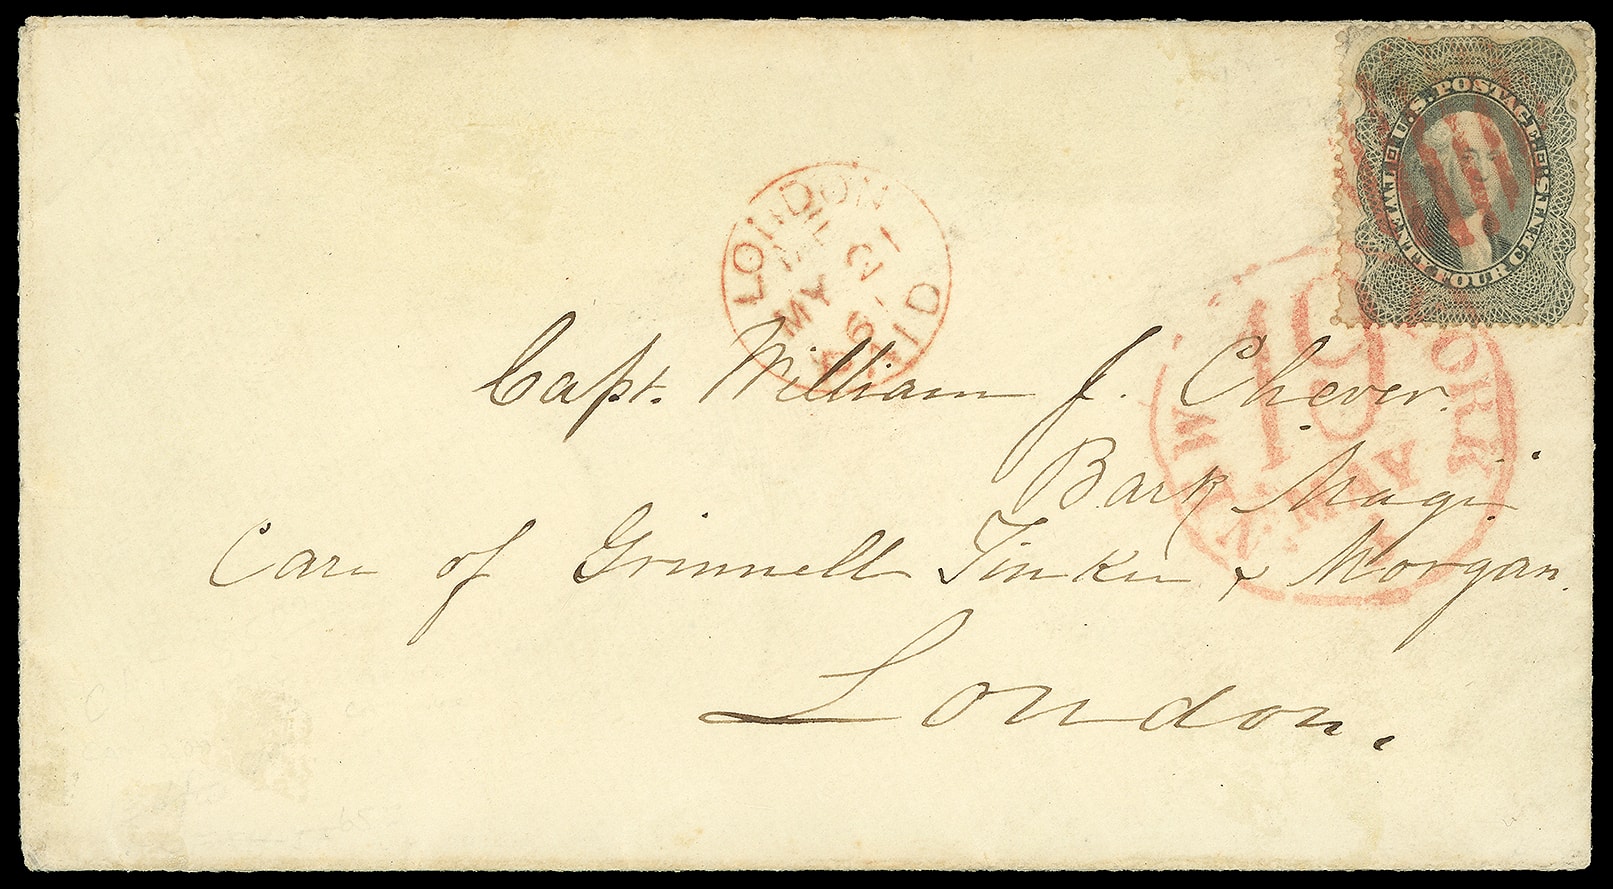 U.S. POSTAGE
TWENTY FOUR CENTS
LONDON
MY 21
61
PAID
NEW YORK
19
MAY
Capt. William J. Chever.
Bark Magi.
Care of Grinnell Tinker & Morgan.
London.